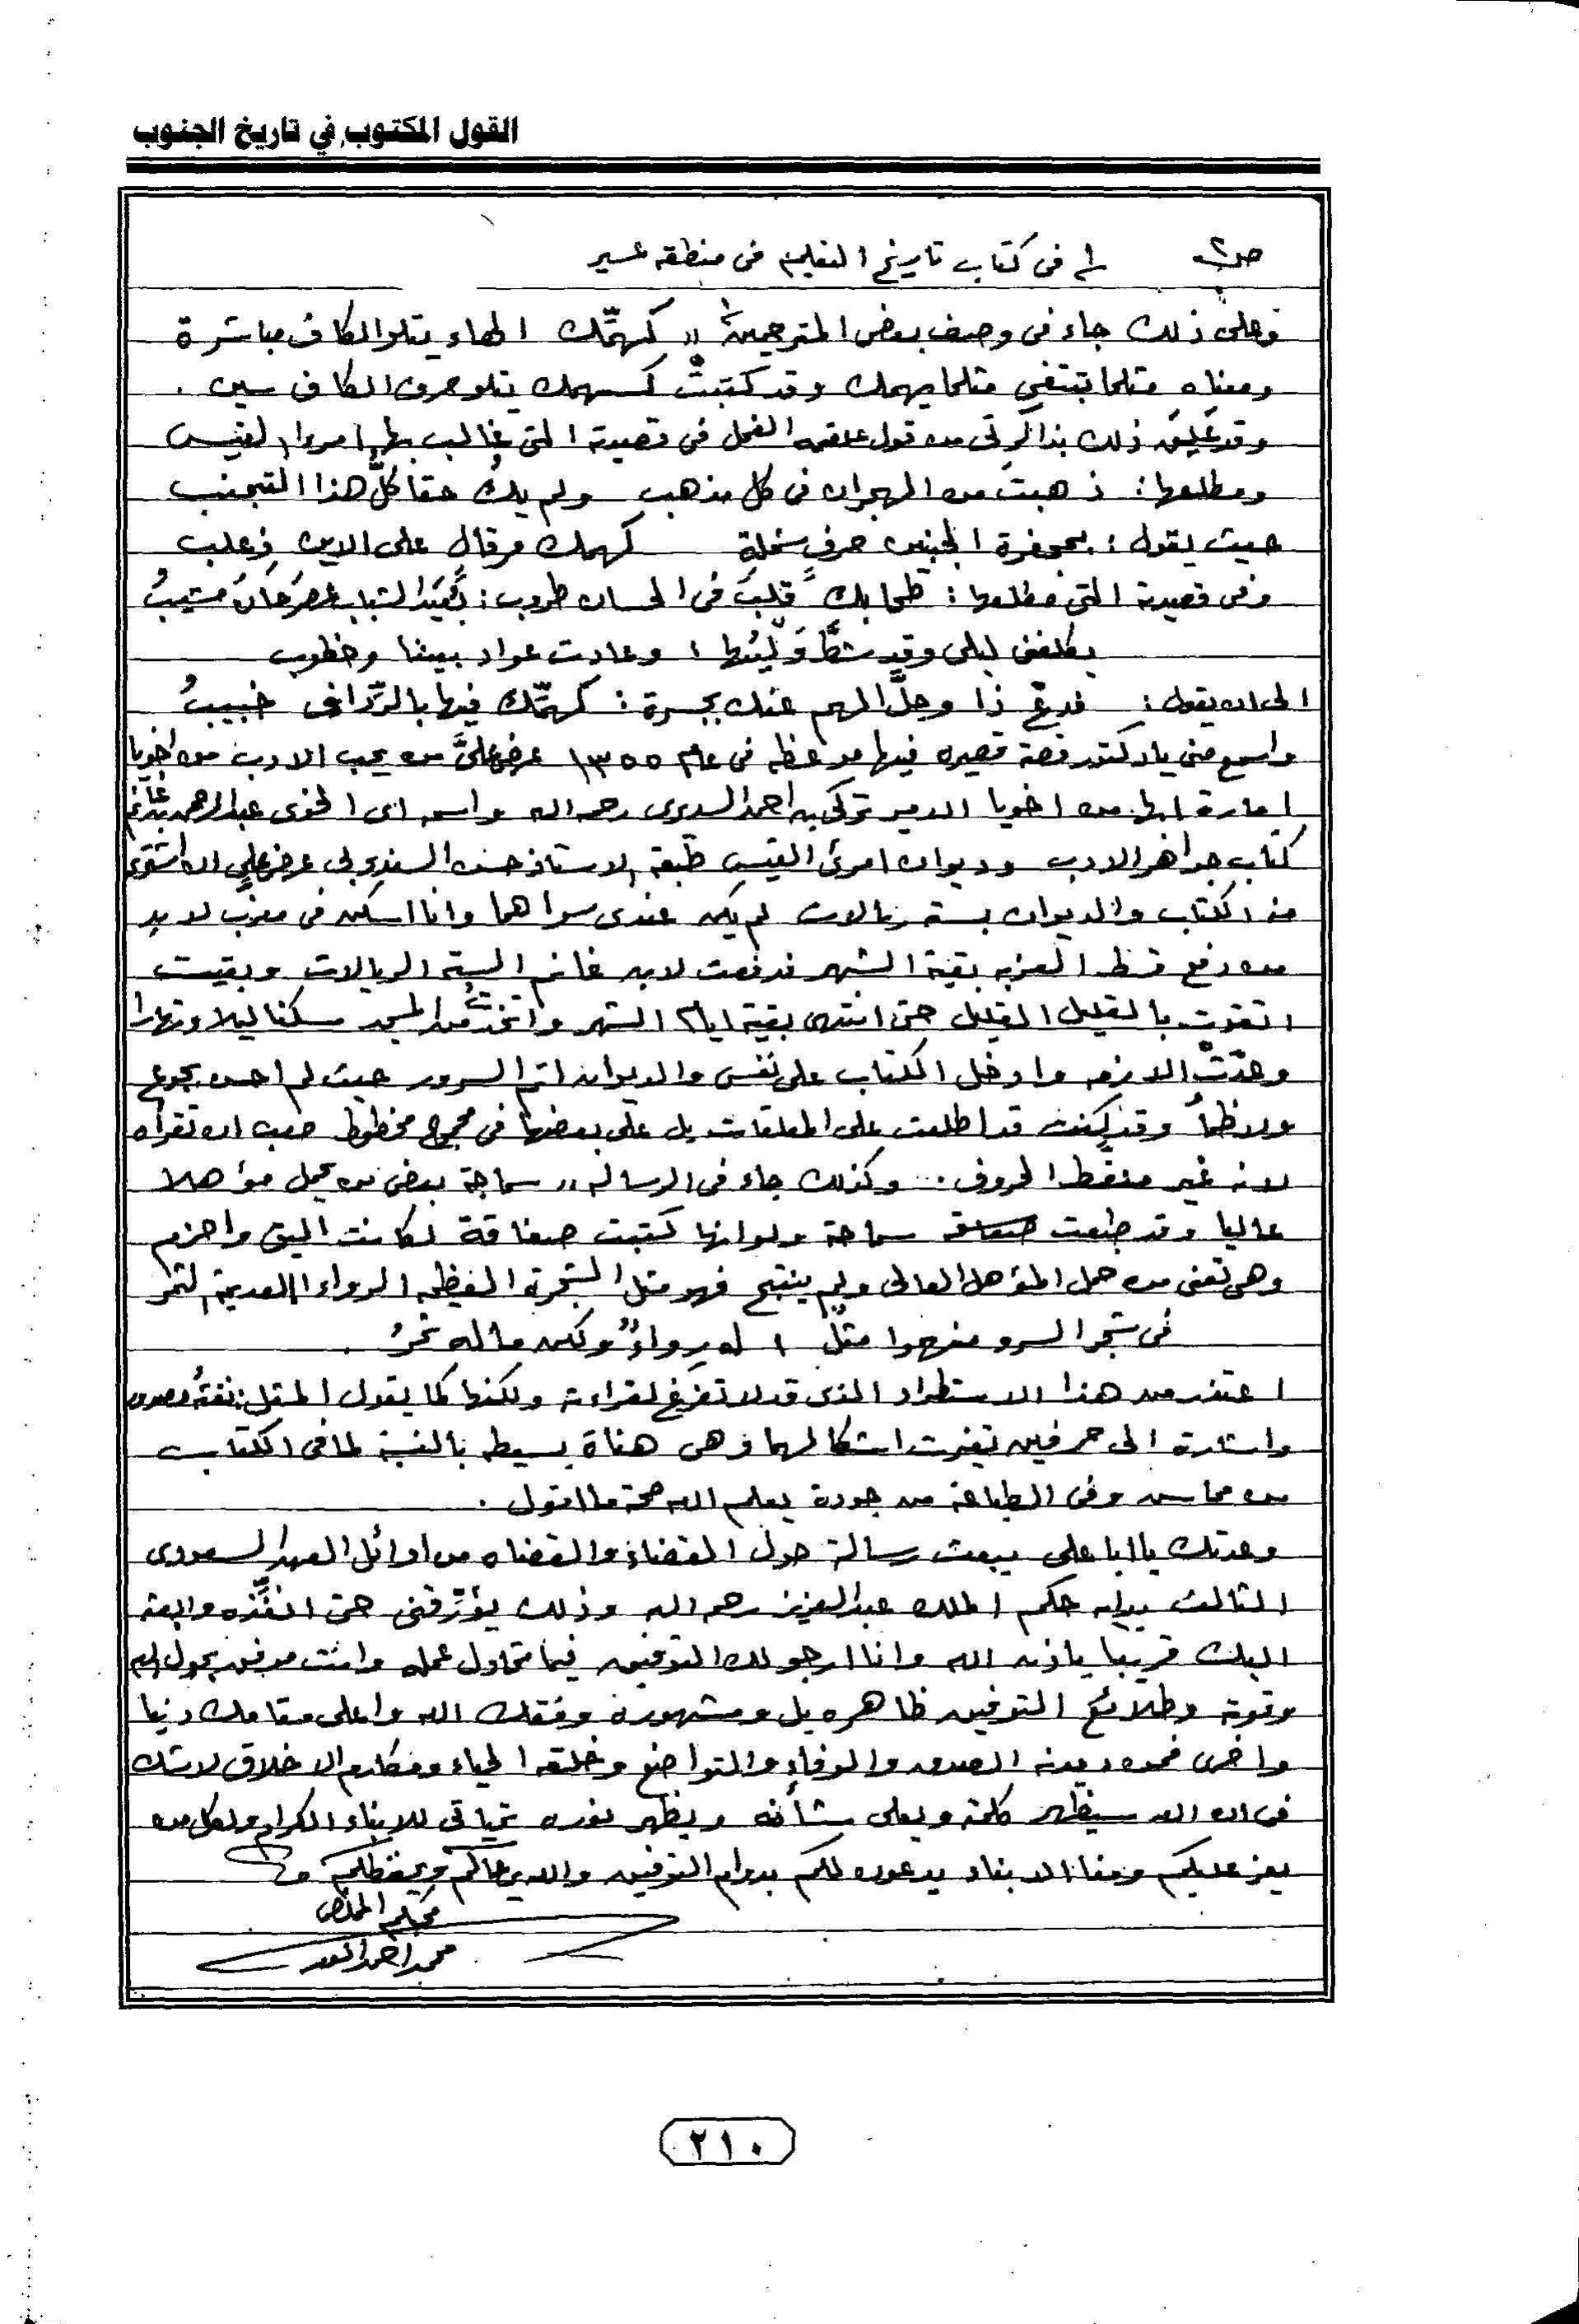 القول المكتوب في تاريخ الجنوب
ص٢ ١ فى كتاب تاريخ التعليم فى منطقة عسير
وعلى ذلك جاء فى وصف بعض المترجمين " كهمّك الهاء يتلو الكاف مباشرة
ومعناه مثلما تبتغي مثلما يهمك وقد كتبت كسهمك يتلو حرف الكاف سين .
وقد علق ذلك بذاكرتى من قول علقمه الفحل فى قصيدته التى غالب بها امروا القيس
ومطلعها : ذهبت من الهجران فى كل مذهب ولم يك حقا كلّ هذا التجنب
حيث يقول : بمجفرة الجنبين حرف شملة كهمك مرقال على الاين ذعلب
وفى قصيدته التى مطلعها : طحا بك قلب فى الحسان طروب : بُعَيدَ الشباب عصر حان مشيبُ
يكلفنى ليلى وقد شطّ وَلْيُها : وعادت عواد بيننا وخطوب
الى ان يقول : فدع ذا وجلّ الهم عنك بجسرة : كهمّك فيها بالرّدافى خبيبُ
واسمع منى يا دكتور قصة قصيره فيها موعظه فى عام ١٣٥٥ عرض علىّ من يحب الادب من اخويا
امارة ابها من اخويا الامير تركى بن احمد السديرى رحمه الله واسمه اى الخوى عبدالرحمن بن غانم
كتاب جواهر الادب وديوان امرئ القيس طبعة الاستاذ حسن السندوبى عرض علي ان اشترى
منه الكتاب والديوان بسته ريالات لم يكن عندى سواهما وانا اسكن فى معزب لا بد
من دفع قسط العزبه بقية الشهر فدفعت لابن غانم السته الريالات وبقيت
اتقوت بالقليل القليل حتى انتهى بقية ايام الشهر واتخذت من المسجد سكنا ليلا ونهارا
وعدّت الازمه وادخل الكتاب على نفسى والديوان اتم السرور حيث لم احس بجوع
ولا ظمأ وقد كنت قد اطلعت على المعلقات بل على بعضها فى مجموع مخطوط صعب ان تقرأه
لانه غير منقط الحروف . وكذلك جاء فى الرساله " سماجة بعض من يحمل مؤهلا
عاليا وقد طبعت سماحة ولو انها كتبت صفاقة لكانت اليق واحزم
وهى تعنى من حمل المؤهل العالى ولم ينتج فهو مثل الشجرة العظيمه الرواء العديمة الثمر
فى شجر السرو منهوا مثل : له رواءٌ ولكن ماله ثمرُ .
اعتذر من هذا الاستطراد الذى قد لا تفرغ لقراءته ولكنها كما يقول المثل : نفثة مصدور
واشارة الى حرفين تغيرت اشكالهما وهى هناة بسيطه بالنسبة لما فى الكتاب
من محاسن وفى الطباعة من جودة يعلم الله صحة ما اقول .
وعدتك يا ابا على ببعث رسالة حول القضاء والقضاه من اوائل العهد السعودى
الثالث بدايه حكم الملك عبدالعزيز رحمه الله وذلك يؤرّقنى حتى انفّذه وابعثه
اليك قريبا باذن الله وانا ارجو لك التوفيق فيما تحاول عمله وانت موفق بحول الله
وقوته وطلائع التوفيق ظاهره بل ومشهوره وفقك الله واعلى مقامك دنيا
واخرى فمن ديدنه الصدق والوفاء والتواضع وخلقه الحياء ومكارم الاخلاق لا شك
فى ان الله سيظهر كلمته ويعلى شأنه ويظهر نوره تحياتى للابناء الكرام ولكل من
يعز عليكم ومنا الابناء يدعون لكم بدوام التوفيق والله يرعاكم ويحفظكم
محبكم المخلص
محمد احمد انور
٢١٠